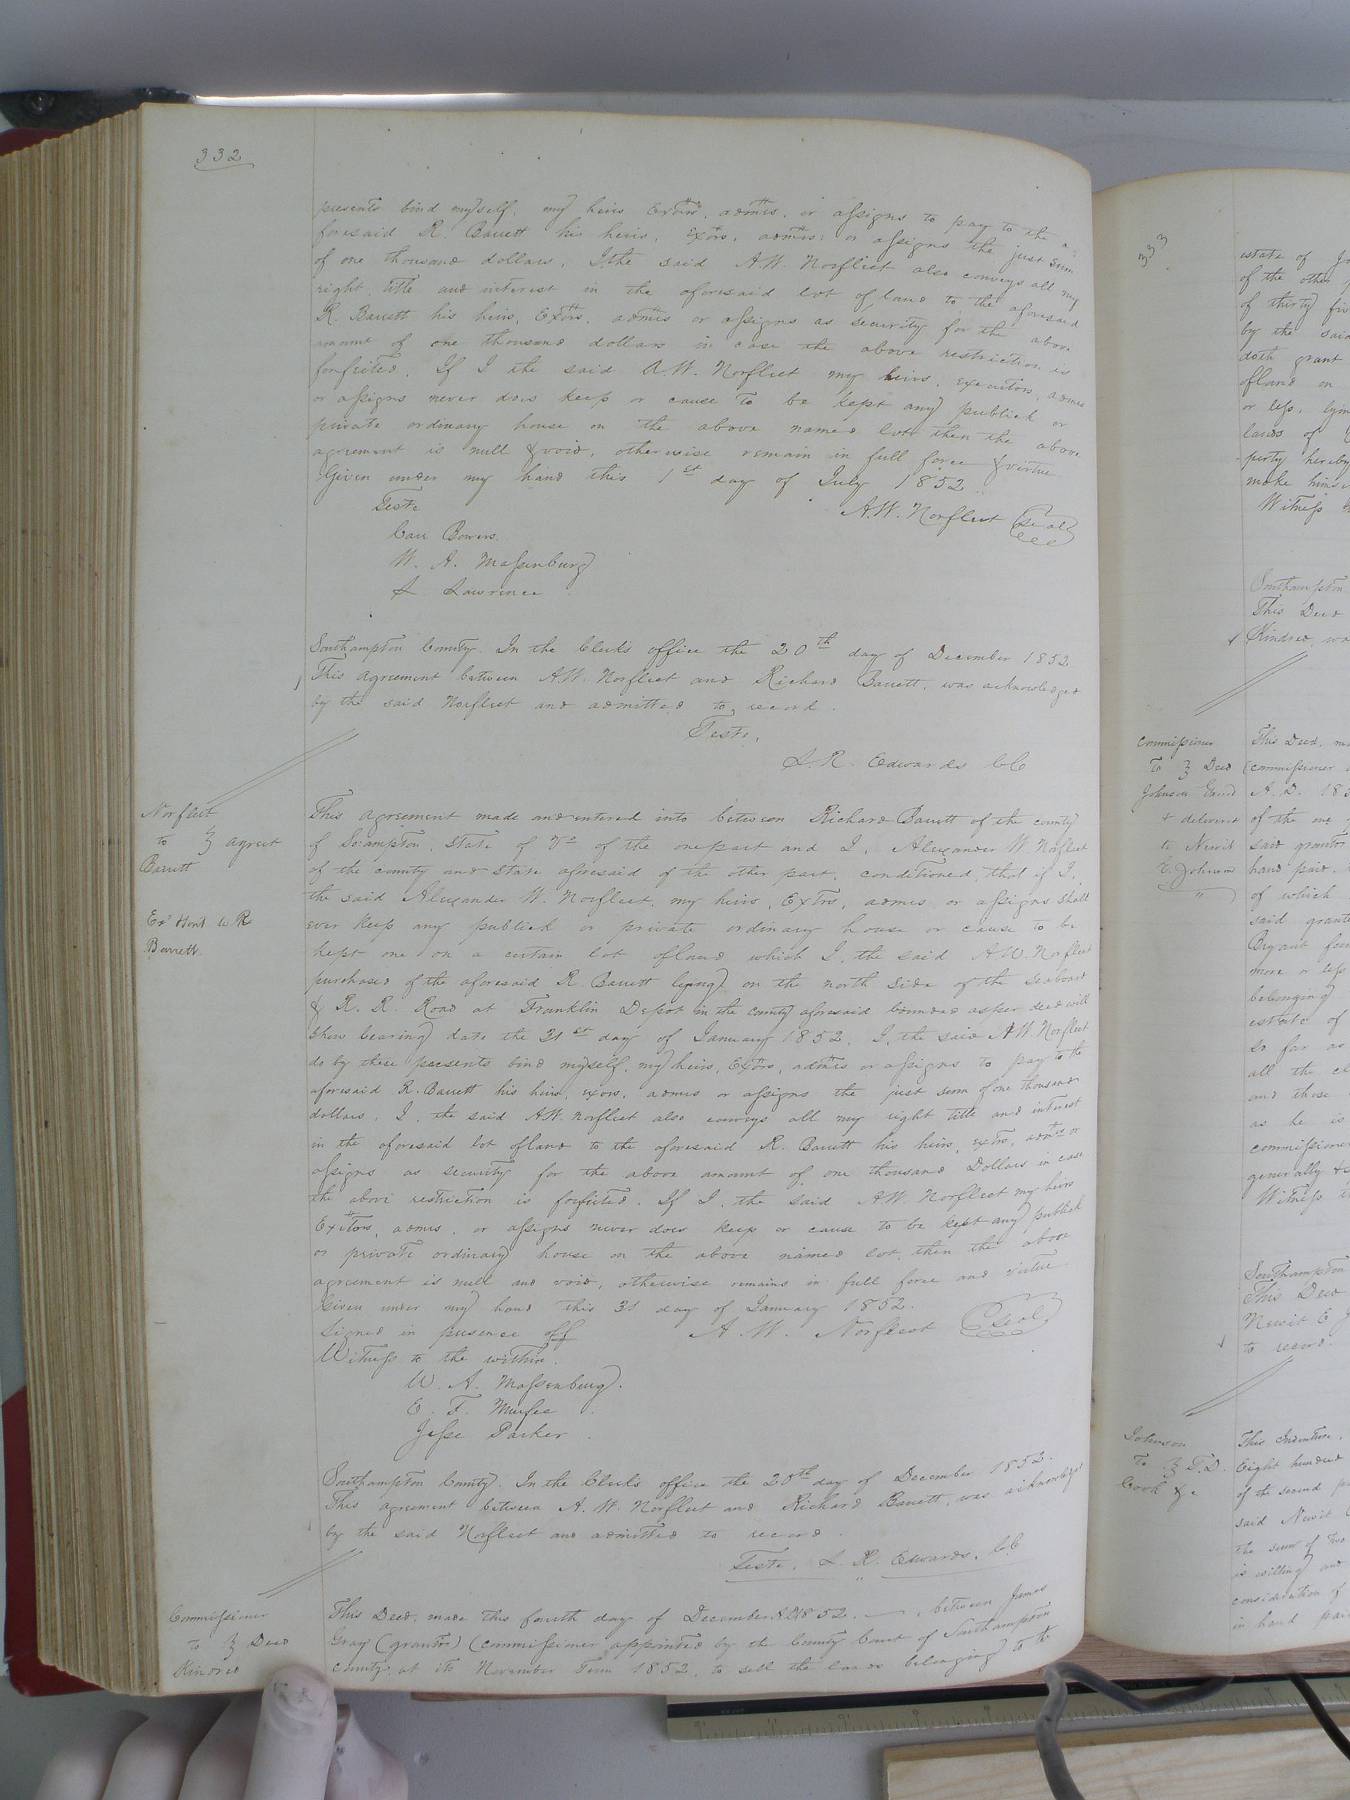 332
presents bind myself, my heirs Extrs, admrs, or assigns to pay to the a
foresaid R. Barrett his heirs, Extrs, admrs: or assigns the just sum
of one thousand dollars, I, the said A.W. Norfleet also conveys all my
right, title and interest in the aforesaid lot of land to the aforesaid
R. Barrett his heirs, Extrs, admrs or assigns as security for the above
amount of one thousand dollars in case the above restriction is
forfeited. If I the said A.W. Norfleet my heirs, executors, admrs
or assigns never does keep or cause to be kept any publick or
private ordinary house on the above named lot then the above
agreement is null & void, otherwise remain in full force & virtue
Given under my hand this 1st day of July 1852
Teste
A.W. Norfleet Seal
Carr Bowers.
W. A. Massenburg
Lawrence
Southampton County. In the Clerks office the 20th day of December 1852
This agreement between A.W. Norfleet and Richard Barrett, was acknowledged
by the said Norfleet and admitted to record.
Teste,
L. R. Edwards CC
Norfleet
to } agreet
Barrett
R
Barrett.
This agreement made and entered into between Richard Barrett of the county
of So:ampton, State of Va of the one part and I, Alexander W. Norfleet
of the county and state aforesaid of the other part, conditioned, that if I,
the said Alexander W. Norfleet, my heirs, Extrs, admrs or assigns shall
ever keep any publick or private ordinary house or cause to be
kept one on a certain lot of land which I, the said A.W. Norfleet
purchased of the aforesaid R. Barrett lying on the north side of the Seaboard
& R. R. Road at Franklin Depot in the county aforesaid bounded as per deed will
show bearing date the 31st day of January 1852, I, the said A.W. Norfleet
do by these presents bind myself, my heirs, Extrs, admrs or assigns to pay to the
aforesaid R. Barrett his heirs, exors, admrs or assigns the just sum of one thousand
dollars. I, the said A.W. Norfleet also conveys all my right title and interest
in the aforesaid lot of land to the aforesaid R. Barrett his heirs, extrs, admrs or
assigns as security for the above amount of one thousand Dollars in case
the above restriction is forfeited. If I, the said A.W. Norfleet my heirs
Exetors, admrs, or assigns never does keep or cause to be kept any publick
or private ordinary house on the above named lot, then the above
agreement is null and void, otherwise remains in full force and virtue
Given under my hand this 31 day of January 1852.
Signed in presence off
A. W. Norfleet Seal
Witness to the within.
W. A. Massenburg.
E. F. Murfee
Jesse Parker.
Southampton County. In the Clerks office the 20th day of December 1852.
This agreement between A. W. Norfleet and Richard Barrett, was acknowledged
by the said Norfleet and admitted to record.
Teste, L. R. Edwards, CC
Commissioner
to } Deed
Kindred
This Deed, made this fourth day of December A.D. 1852, between James
Gray (grantor) (commissioner appointed by the County Court of Southampton
county, at its November Term 1852, to sell the lands belonging to the
333
estate of
of the other
of thirty
by the said
doth grant
of land on
or less, lying
lands of
party hereby
make
Witness
Southampton
This Deed
Kindred was
Commissioner
To } Deed
Johnson
& delivered
to Newit
E. Johnson
This Deed,
(commissioner
A.D. 185
of the one
said grantor
hand paid,
of which
said grant
Bryant
more or less
belonging
estate of
so far as
all the
and those
as he is
commissioner
generally
Witness
Southampton
This Deed
Newit E
to record.
Johnson
To } T.D.
Cook &c
This Indenture,
Eight hundred
of the second
said Newit
the sum of two
is willing and
consideration of
in hand paid